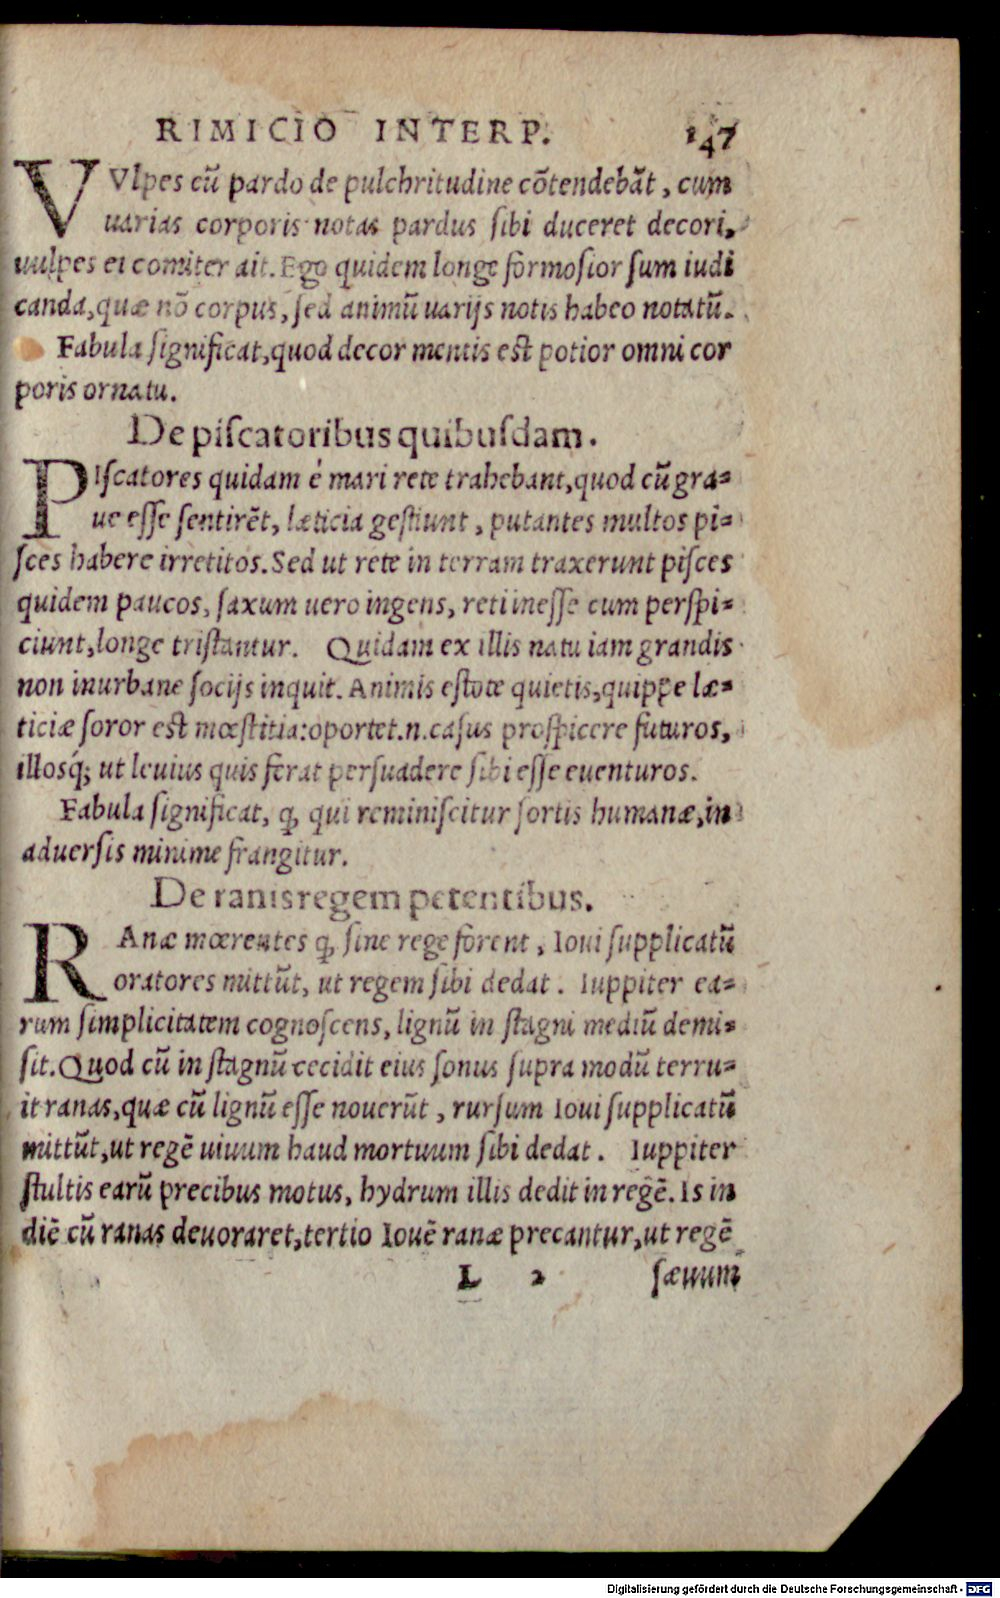 RIMICIO INTERP. 147
VVlpes cū pardo de pulchritudine cōtendebāt, cum
uarias corporis notas pardus sibi duceret decori,
uulpes ei comiter ait. Ego quidem longe formosior sum iudi
canda, quæ nō corpus, sed animū uarijs notis habeo notatū.
Fabula significat, quod decor mentis est potior omni cor
poris ornatu.
De piscatoribus quibusdam.
PIscatores quidam é mari rete trahebant, quod cū gra-
ue esse sentirēt, læticia gestiunt, putantes multos pi-
sces habere irretitos. Sed ut rete in terram traxerunt pisces
quidem paucos, saxum uero ingens, reti inesse cum perspi-
ciunt, longe tristantur. Quidam ex illis natu iam grandis
non inurbane socijs inquit. Animis estote quietis, quippe læ-
ticiæ soror est mœstitia: oportet .n. casus prospicere futuros,
illosq́; ut leuius quis ferat persuadere sibi esse euenturos.
Fabula significat, ꝙ qui reminiscitur sortis humanæ, in
aduersis minime frangitur.
De ranis regem petentibus.
RAnæ mœrentes ꝙ sine rege forent, Ioui supplicatū
oratores mittūt, ut regem sibi dedat. Iuppiter ea-
rum simplicitatem cognoscens, lignū in stagni mediū demi-
sit. Quod cū in stagnū cecidit eius sonus supra modū terru-
it ranas, quæ cū lignū esse nouerūt, rursum Ioui supplicatū
mittūt, ut regē uiuum haud mortuum sibi dedat. Iuppiter
stultis earū precibus motus, hydrum illis dedit in regē. Is in
diē cū ranas deuoraret, tertio Iouē ranæ precantur, ut regē
L 2 sæuum
Digitalisierung gefördert durch die Deutsche Forschungsgemeinschaft - DFG